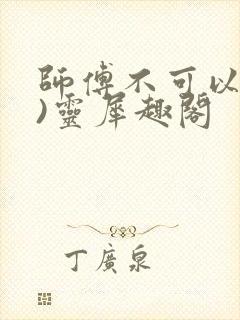 師傅不可以
)靈犀趣閣
丁廣泉